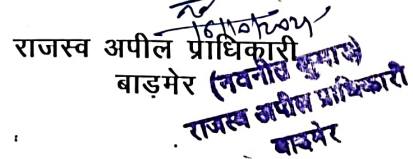 राजस्व अपील प्राधिकारी
बाड़मेर
(नवनीत कुमार)
राजस्व अपील प्राधिकारी
बाडमेर